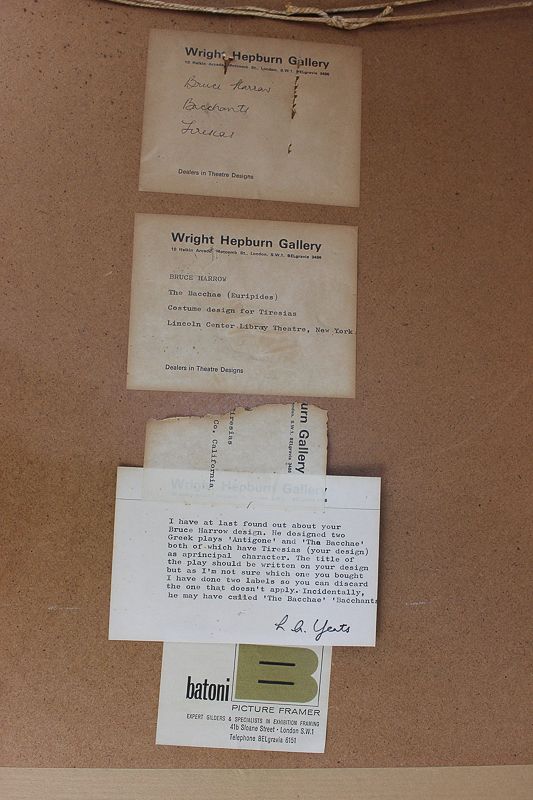 Wright Hepburn Gallery
10 Halkin Arcade, Motcomb St., London, S.W.1. BELgravia 3486
Bruce Harrow
Bacchants
Tiresias
Dealers in Theatre Designs
Wright Hepburn Gallery
10 Halkin Arcade, Motcomb St., London, S.W.1. BELgravia 3486
BRUCE HARROW
The Bacchae (Euripides)
Costume design for Tiresias
Lincoln Center Libray Theatre, New York
Dealers in Theatre Designs
urn Gallery
S.W.1. BELgravia 3486
Tiresias
Co, California
Wright Hepburn Galler
I have at last found out about your
Bruce Harrow design. He designed two
Greek plays 'Antigone' and 'The Bacchae'
both of which have Tiresias (your design)
as aprincipal character. The title of
the play should be written on your design
but as I'm not sure which one you bought
I have done two labels so you can discard
the one that doesn't apply. Incidentally,
he may have called 'The Bacchae' 'Bacchants
Yeats
B
batoni
PICTURE FRAMER
EXPERT GILDERS & SPECIALISTS IN EXHIBITION FRAMING
41b Sloane Street · London S.W.1
Telephone BELgravia 6151